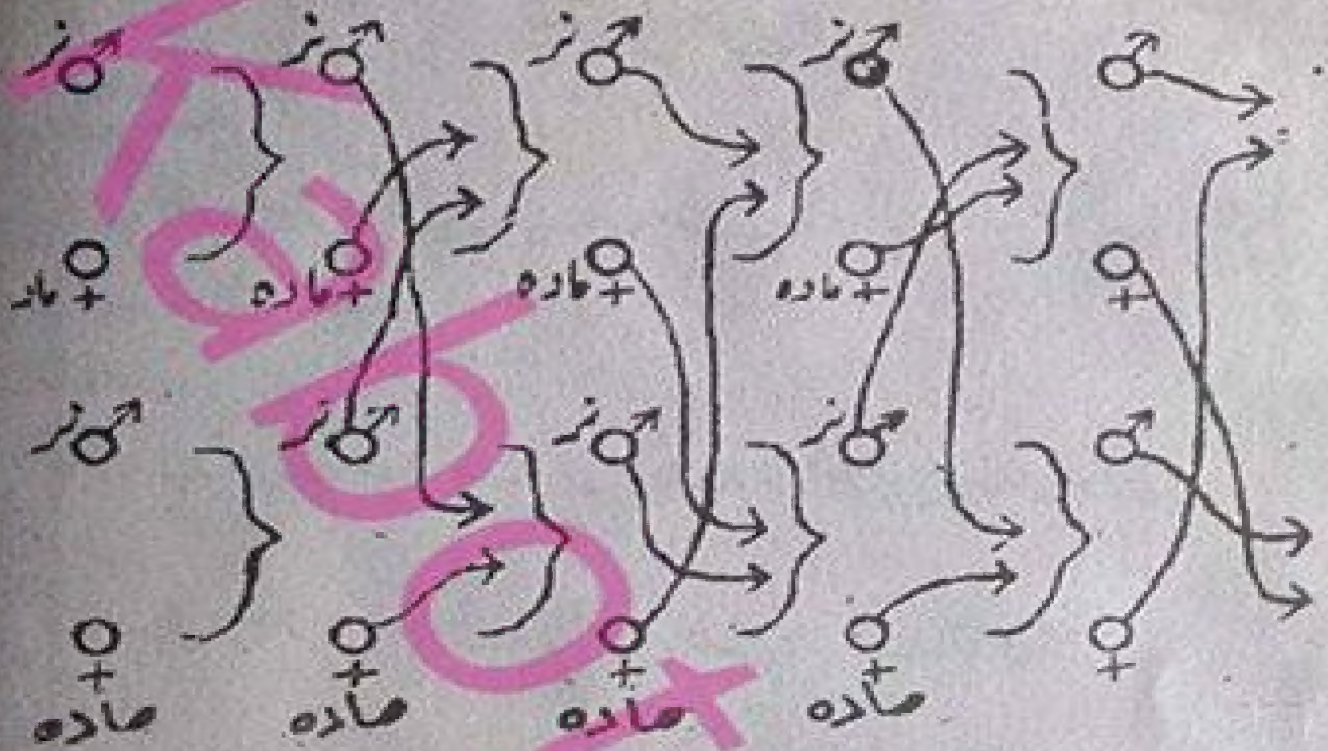 نر نر نر نر
ماده ماده ماده
نر نر نر نر
ماده ماده ماده ماده